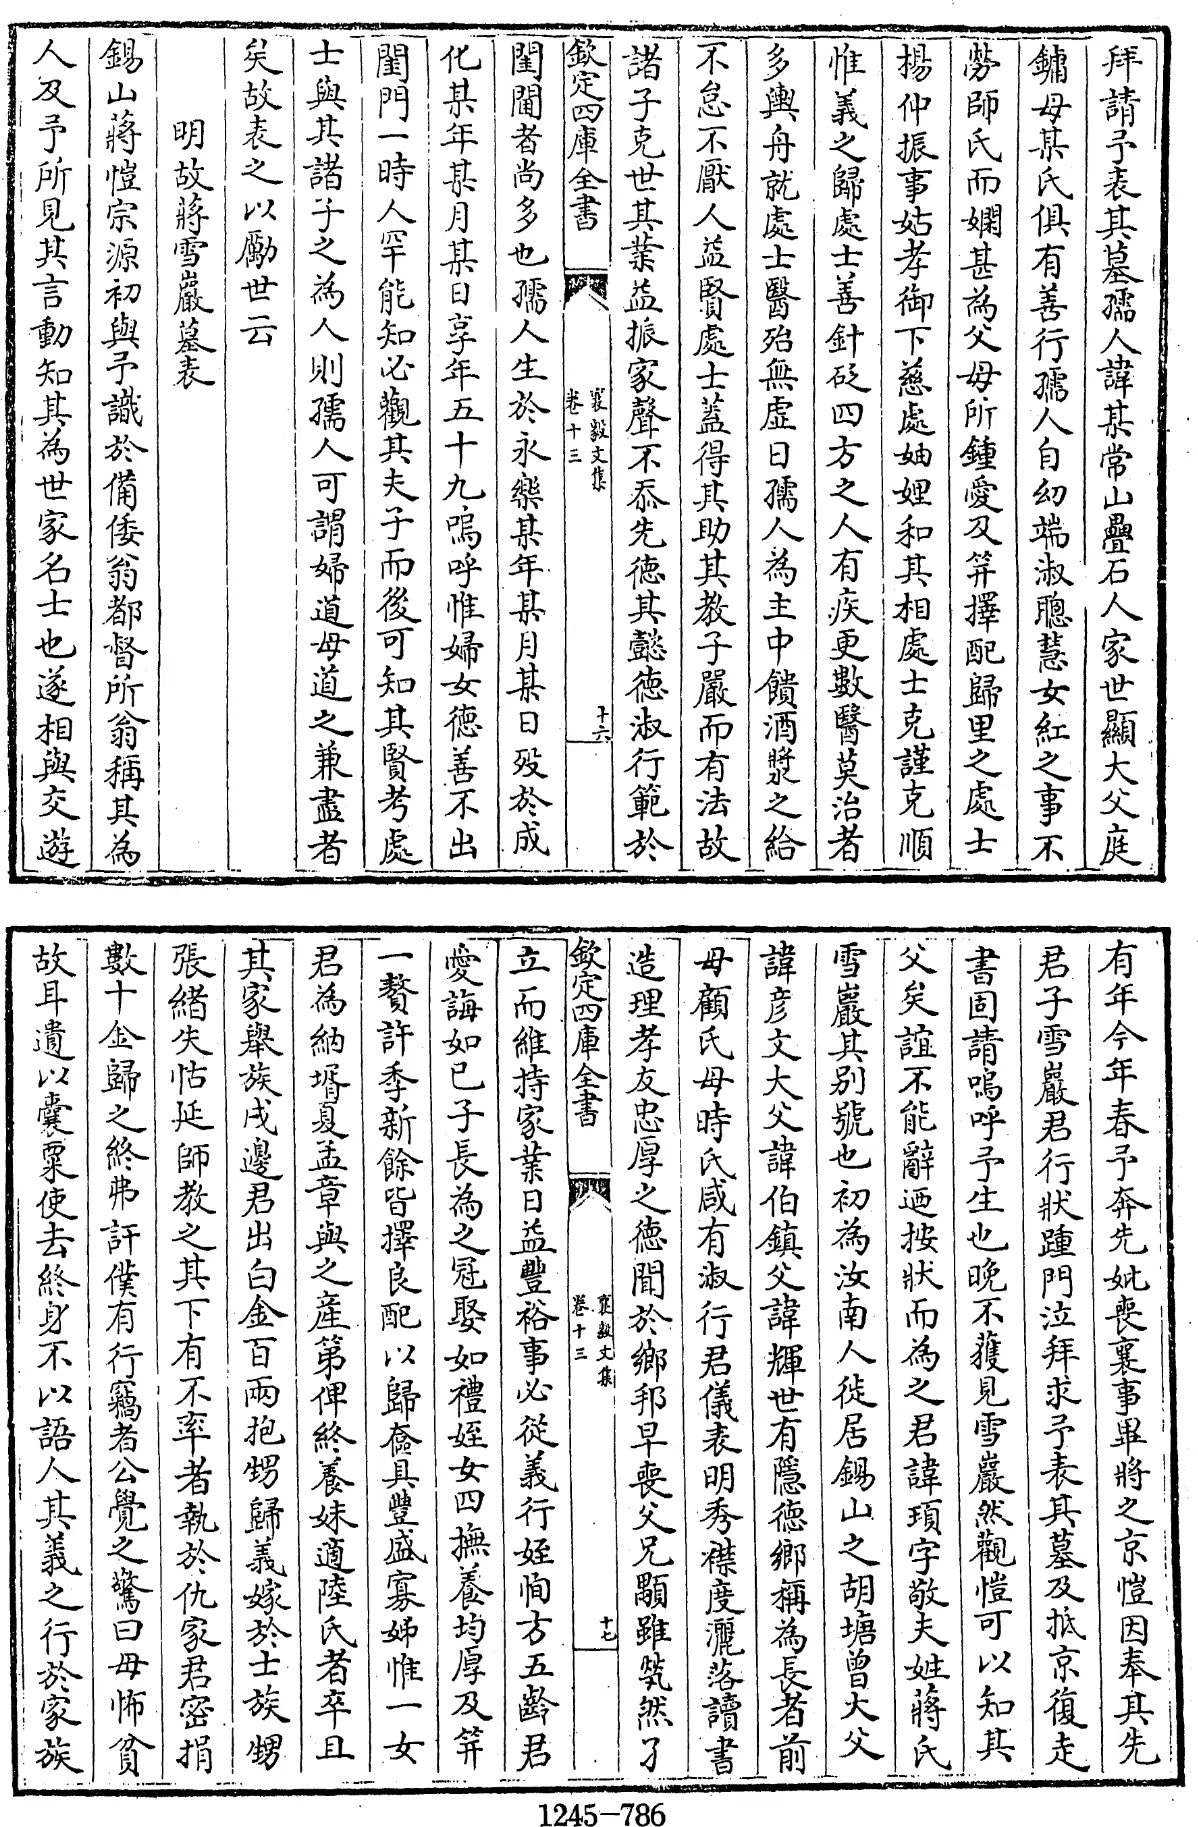 拜請予表其墓孺人諱某常山疊石人家世顯大父庭
鏞母某氏俱有善行孺人自幼端淑聰慧女紅之事不
勞師氏而嫻甚為父母所鍾愛及笄擇配歸里之處士
楊仲振事姑孝御下慈處妯娌和其相處士克謹克順
惟義之歸處士善針砭四方之人有疾更數醫莫治者
多輿舟就處士醫殆無虛日孺人為主中饋酒漿之給
不怠不厭人益賢處士蓋得其助其教子嚴而有法故
諸子克世其業益振家聲不忝先德其懿德淑行範於
欽定四庫全書
襄毅文集
卷十三
十六
閨閫者尚多也孺人生於永樂某年某月某日歿於成
化某年某月某日享年五十九嗚呼惟婦女德善不出
閨門一時人罕能知必觀其夫子而後可知其賢考處
士與其諸子之為人則孺人可謂婦道母道之兼盡者
矣故表之以勵世云
明故蔣雪巖墓表
錫山蔣愷宗源初與予識於備倭翁都督所翁稱其為
人及予所見其言動知其為世家名士也遂相與交遊
有年今年春予奔先妣喪襄事畢將之京愷因奉其先
君子雪巖君行狀踵門泣拜求予表其墓及抵京復走
書固請嗚呼予生也晚不獲見雪巖然觀愷可以知其
父矣誼不能辭迺按狀而為之君諱頊字敬夫姓蔣氏
雪巖其別號也初為汝南人徙居錫山之胡塘曾大父
諱彦文大父諱伯鎮父諱輝世有隱德鄉稱為長者前
母顧氏母時氏咸有淑行君儀表明秀襟度灑落讀書
造理孝友忠厚之德聞於鄉邦早喪父兄顒雖煢然孑
欽定四庫全書
襄毅文集
卷十三
十七
立而維持家業日益豐裕事必從義行姪恂方五齡君
愛誨如己子長為之冠娶如禮姪女四撫養均厚及笄
一贅許季新餘皆擇良配以歸奩具豐盛寡姊惟一女
君為納壻夏孟章與之產第俾終養妹適陸氏者卒且
其家舉族戍邊君出白金百兩抱甥歸義嫁於士族甥
張緒失怙延師教之其下有不率者執於仇家君密捐
數十金歸之終弗訐僕有行竊者公覺之驚曰毋怖貧
故耳遺以囊粟使去終身不以語人其義之行於家族
1245-786